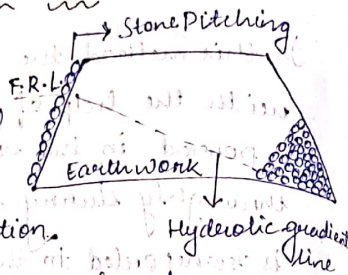 Stone Pitching
F.R.L.
Earthwork
tion.
Hyderolic gradient
line